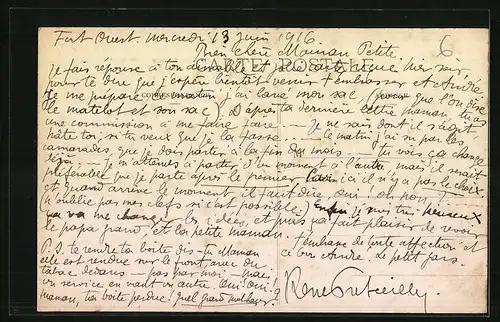 Fort Ouest. mercredi 13 juin 1916
Bien chère Maman Petite
6
CARTE POSTALE
Je fais réponse à ton aimable et
pour te dire que j'espère bientôt venir t'embrasser et André
je me prépare ce matin j'ai lavé mon sac, que l'on dise
le matelot et son sac) D'après ta dernière lettre maman, tu as
une commission à me faire faire. — Je ne sais dont il s'agit
hâte toi si tu veux que je la fasse — le matin j'ai su par les
camarades que je dois partir à la fin du mois. — Tu vois ça change
déjà. — Je m'attends à partir d'un moment à l'autre mais il serait
préférable que je parte après le premier ici il n'y a pas le choix
et quand arrive le moment il faut dire oui! oh non!
(n'oublie pas mes clefs si c'est possible) Enfin je suis très heureux
ça va me changer les idées, et puis ça fait plaisir de revoir
le papa grand et la petite maman. J'embrasse de toute affection et
P.S. te rendre ta boîte dis-tu Maman ce bon André. Le petit gars.
elle est rendue sur le front avec du
tabac dedans — pas par moi — mais
un service en vaut un autre Oui Oui!
maman, ta boîte perdue! Quel grand malheur!
René